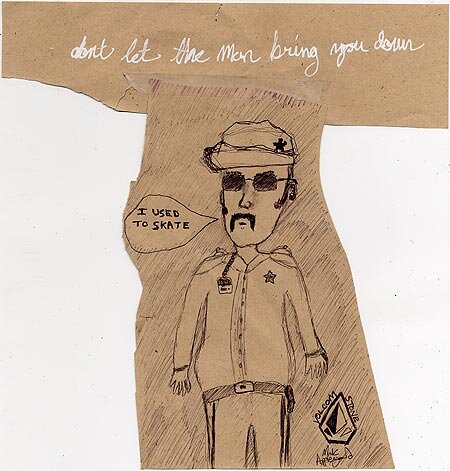 dont let the man bring you down
I USED
TO SKATE
VOLCOM STONE
Mark
Appleyard